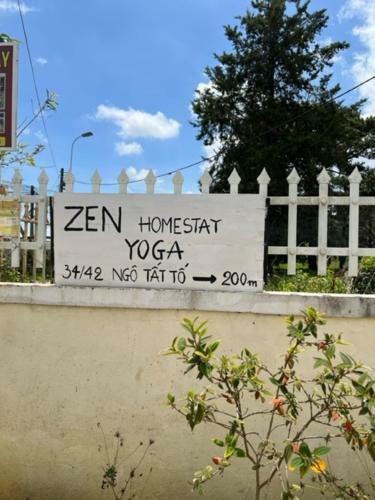 ZEN HOMESTAY
YOGA
34/42 NGÔ TẤT TỐ → 200m